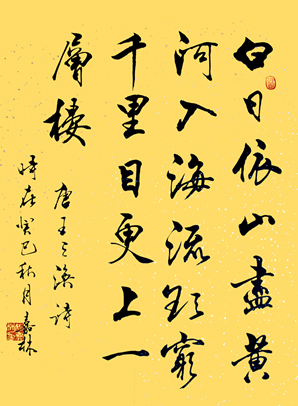 白日依山盡黄
河入海流欲窮
千里目更上一
層樓
唐王之渙詩
時在癸巳秋月嘉林